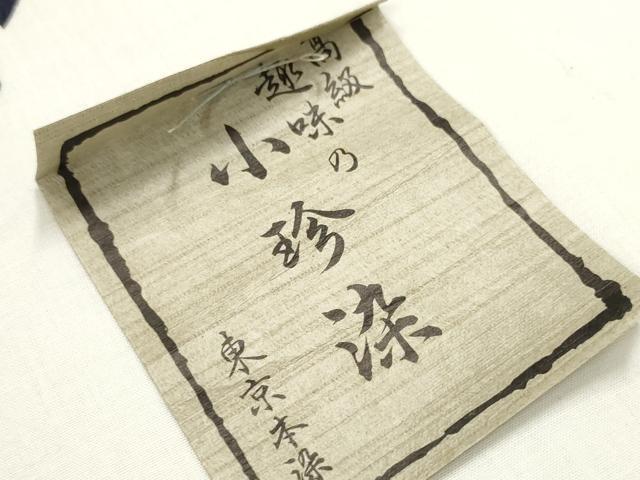 高級
趣味の
小珍染
東京本染